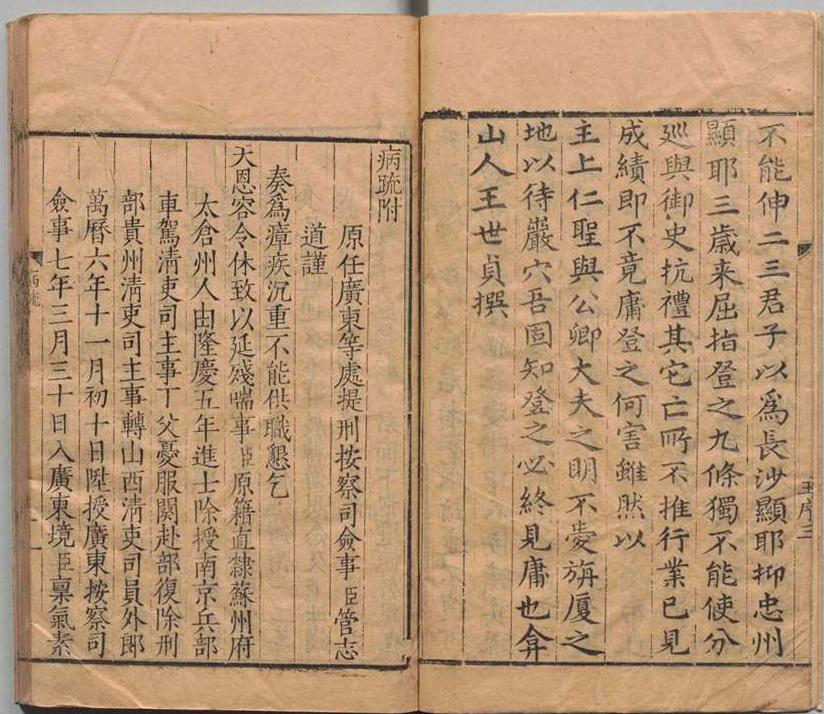 不能伸二三君子以為長沙顯耶抑忠州
顯耶三歳来屈指登之九條獨不能使分
廵與御史抗禮其它亡所不推行業已見
成績即不竟庸登之何害雖然以
主上仁聖與公卿大夫之明不愛旃厦之
地以待嚴穴吾固知登之必終見庸也弇
山人王世貞撰
王序三
病疏附
原任廣東等處提刑按察司僉事臣管志
道謹
奏為瘴疾沉重不能供職懇乞
天恩容令休致以延殘喘事臣原籍直隸蘇州府
太倉州人由隆慶五年進士除授南京兵部
車駕清吏司主事丁父憂服闋赴部復除刑
部貴州清吏司主事轉山西清吏司員外郎
萬曆六年十一月初十日陞授廣東按察司
僉事七年三月三十日入廣東境臣稟氣素
病疏
一